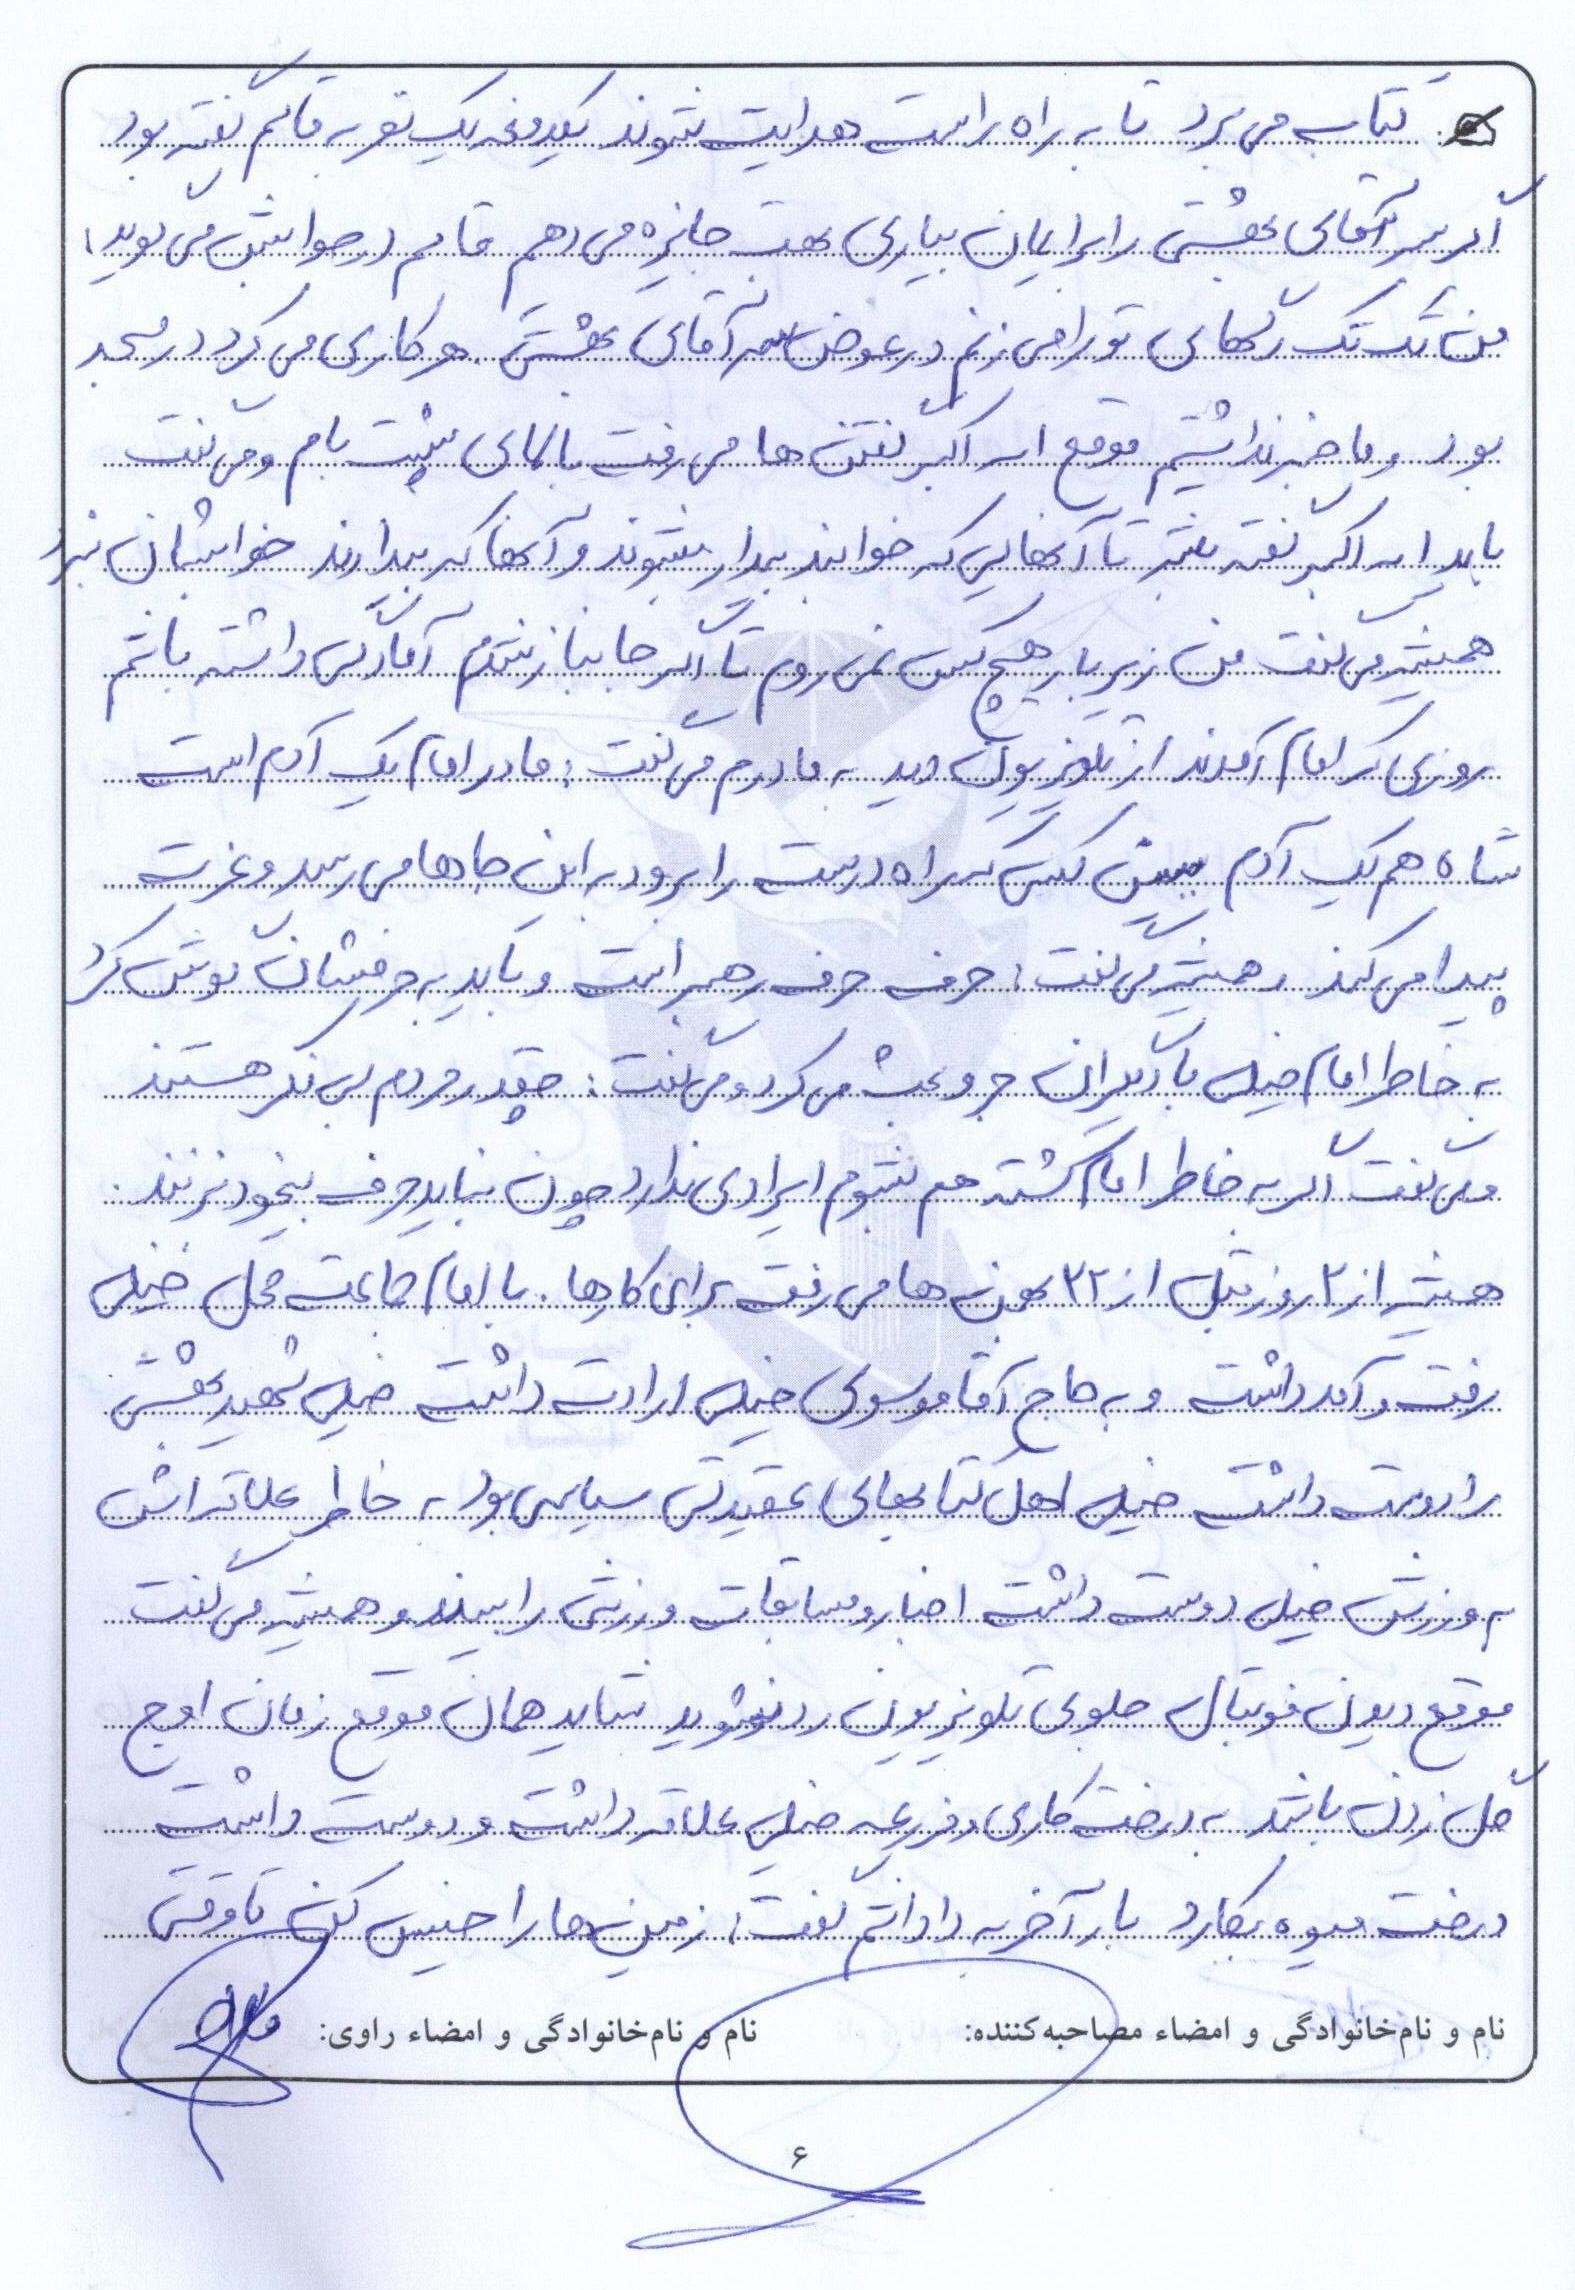 کتاب می برد تا به راه راست هدایت شوند یکدفعه یک نفر به قاسم گفته بود
اگر سر آقای بهشتی را برایمان بیاری بهت جایزه می دهم قاسم در جوابش می گوید:
من تک تک رگهای تو را می زنم در عوض سر آقای بهشتی. هر کاری می کرد در مسجد
بود و ما خبر نداشتیم موقع الله اکبر گفتن ها می رفت بالای پشت بام و می گفت
باید الله اکبر گفته بشه تا آنهایی که خوابند بیدار بشوند و آنها که بیدارند خوابشان نبرد
همیشه می گفت من زیر بار هیچ کس نمی روم تا اگر جانباز شدم آمادگی داشته باشم
روزی که امام آمدند از تلویزیون دید به مادرم می گفت: مادر امام یک آدم است
شاه هم یک آدم ببین کسی که راه درست را برود به این جاها می رسد و عزت
پیدا می کند و همیشه می گفت: حرف حرف رهبر است و باید به حرفشان گوش کرد
به خاطر امام خیلی با دیگران جر و بحث می کرد و می گفت: چقدر مردم بی فکر هستند
و می گفت اگر به خاطر امام کشته هم بشوم ایرادی ندارد چون نباید حرف بیخود بزنند.
همیشه از ۲ روز قبل از ۲۲ بهمن ها می رفت برای کارها. با امام جماعت محل خیلی
رفت و آمد داشت و به حاج آقا موسوی خیلی ارادت داشت خیلی شهید بهشتی
را دوست داشت خیلی اهل کتابهای عقیدتی سیاسی بود به خاطر علاقه اش
به ورزش خیلی دوست داشت اخبار و مسابقات ورزشی را ببیند و همیشه می گفت
موقع دیدن فوتبال جلوی تلویزیون رد نشوید شاید همان موقع زمان اوج
گل زدن باشد به درخت کاری و مزرعه خیلی علاقه داشت و دوست داشت
درخت میوه بکارد بار آخر به داداشم گفت: زمین ها را خیس کن تا وقتی
نام و نام‌خانوادگی و امضاء مصاحبه‌کننده: نام و نام‌خانوادگی و امضاء راوی:
۶